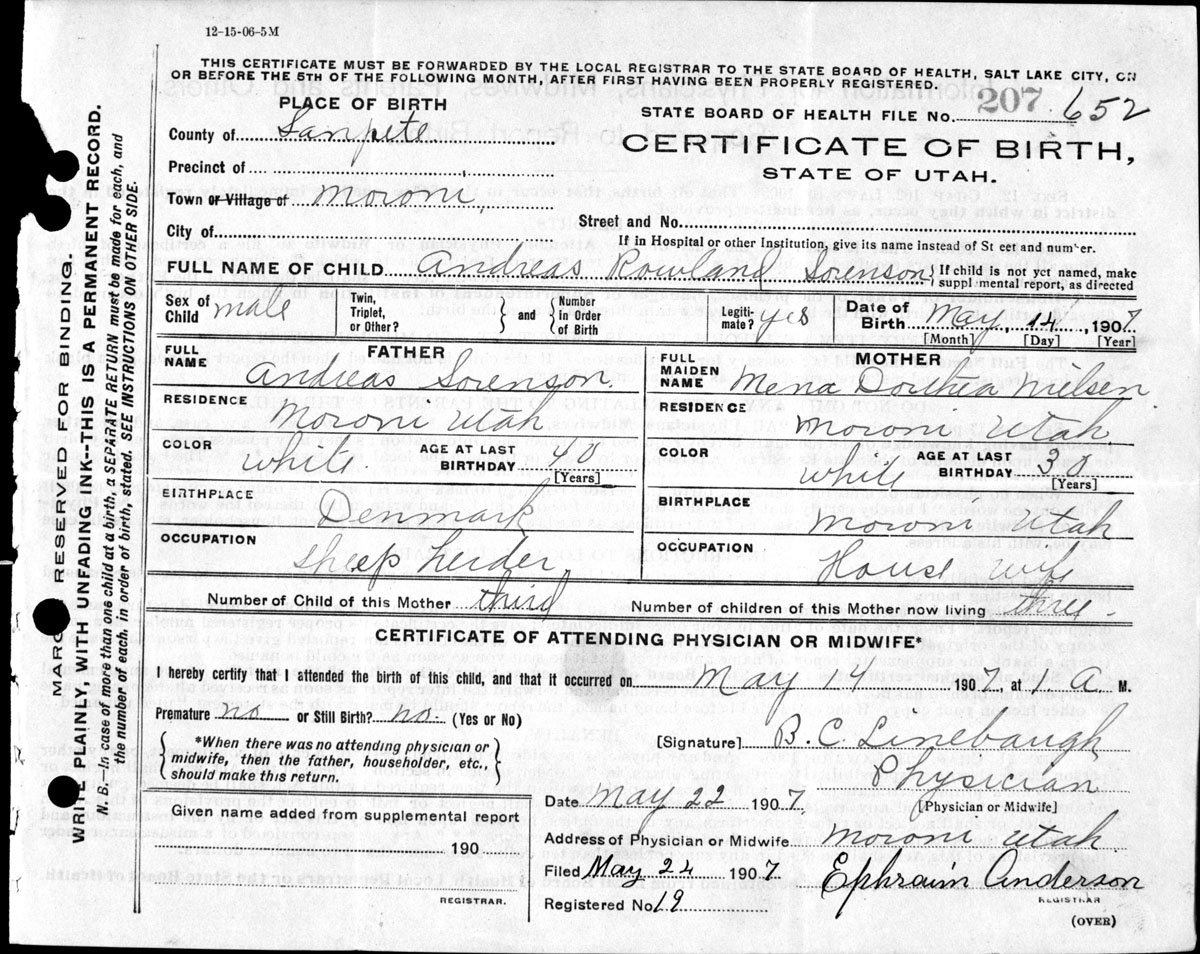 12-15-06-5M
THIS CERTIFICATE MUST BE FORWARDED BY THE LOCAL REGISTRAR TO THE STATE BOARD OF HEALTH, SALT LAKE CITY, ON
OR BEFORE THE 5TH OF THE FOLLOWING MONTH, AFTER FIRST HAVING BEEN PROPERLY REGISTERED.
PLACE OF BIRTH
STATE BOARD OF HEALTH FILE No. 207 652
County of Sanpete
CERTIFICATE OF BIRTH,
Precinct of
STATE OF UTAH.
Town or Village of Moroni,
Street and No.
City of
If in Hospital or other Institution, give its name instead of St eet and number.
FULL NAME OF CHILD Andreas Rowland Sorenson } If child is not yet named, make suppl mental report, as directed
Sex of Child male
Twin, Triplet, or Other? } and { Number In Order of Birth
Legitimate? yes
Date of Birth May, 14, 1907
[Month] [Day] [Year]
FATHER
FULL NAME Andreas Sorenson.
RESIDENCE Moroni Utah
COLOR White
AGE AT LAST BIRTHDAY 40 [Years]
BIRTHPLACE Denmark
OCCUPATION sheep herder
MOTHER
FULL MAIDEN NAME Mena Dorthea Nielsen
RESIDENCE Moroni Utah
COLOR White
AGE AT LAST BIRTHDAY 30 [Years]
BIRTHPLACE Moroni Utah
OCCUPATION House wife
Number of Child of this Mother third
Number of children of this Mother now living three
CERTIFICATE OF ATTENDING PHYSICIAN OR MIDWIFE*
I hereby certify that I attended the birth of this child, and that it occurred on May 14 1907, at 1 A M.
Premature no or Still Birth? no. (Yes or No)
{ *When there was no attending physician or midwife, then the father, householder, etc., should make this return. }
[Signature] B. C. Linebaugh
Physician
[Physician or Midwife]
Date May 22 1907.
Given name added from supplemental report
190
REGISTRAR.
Address of Physician or Midwife Moroni Utah
Filed May 24 1907. Ephraim Anderson
REGISTRAR
Registered No 19
(OVER)
MARGIN RESERVED FOR BINDING.
WRITE PLAINLY, WITH UNFADING INK--THIS IS A PERMANENT RECORD.
N. B.--In case of more than one child at a birth, a SEPARATE RETURN must be made for each, and
the number of each, in order of birth, stated. SEE INSTRUCTIONS ON OTHER SIDE.